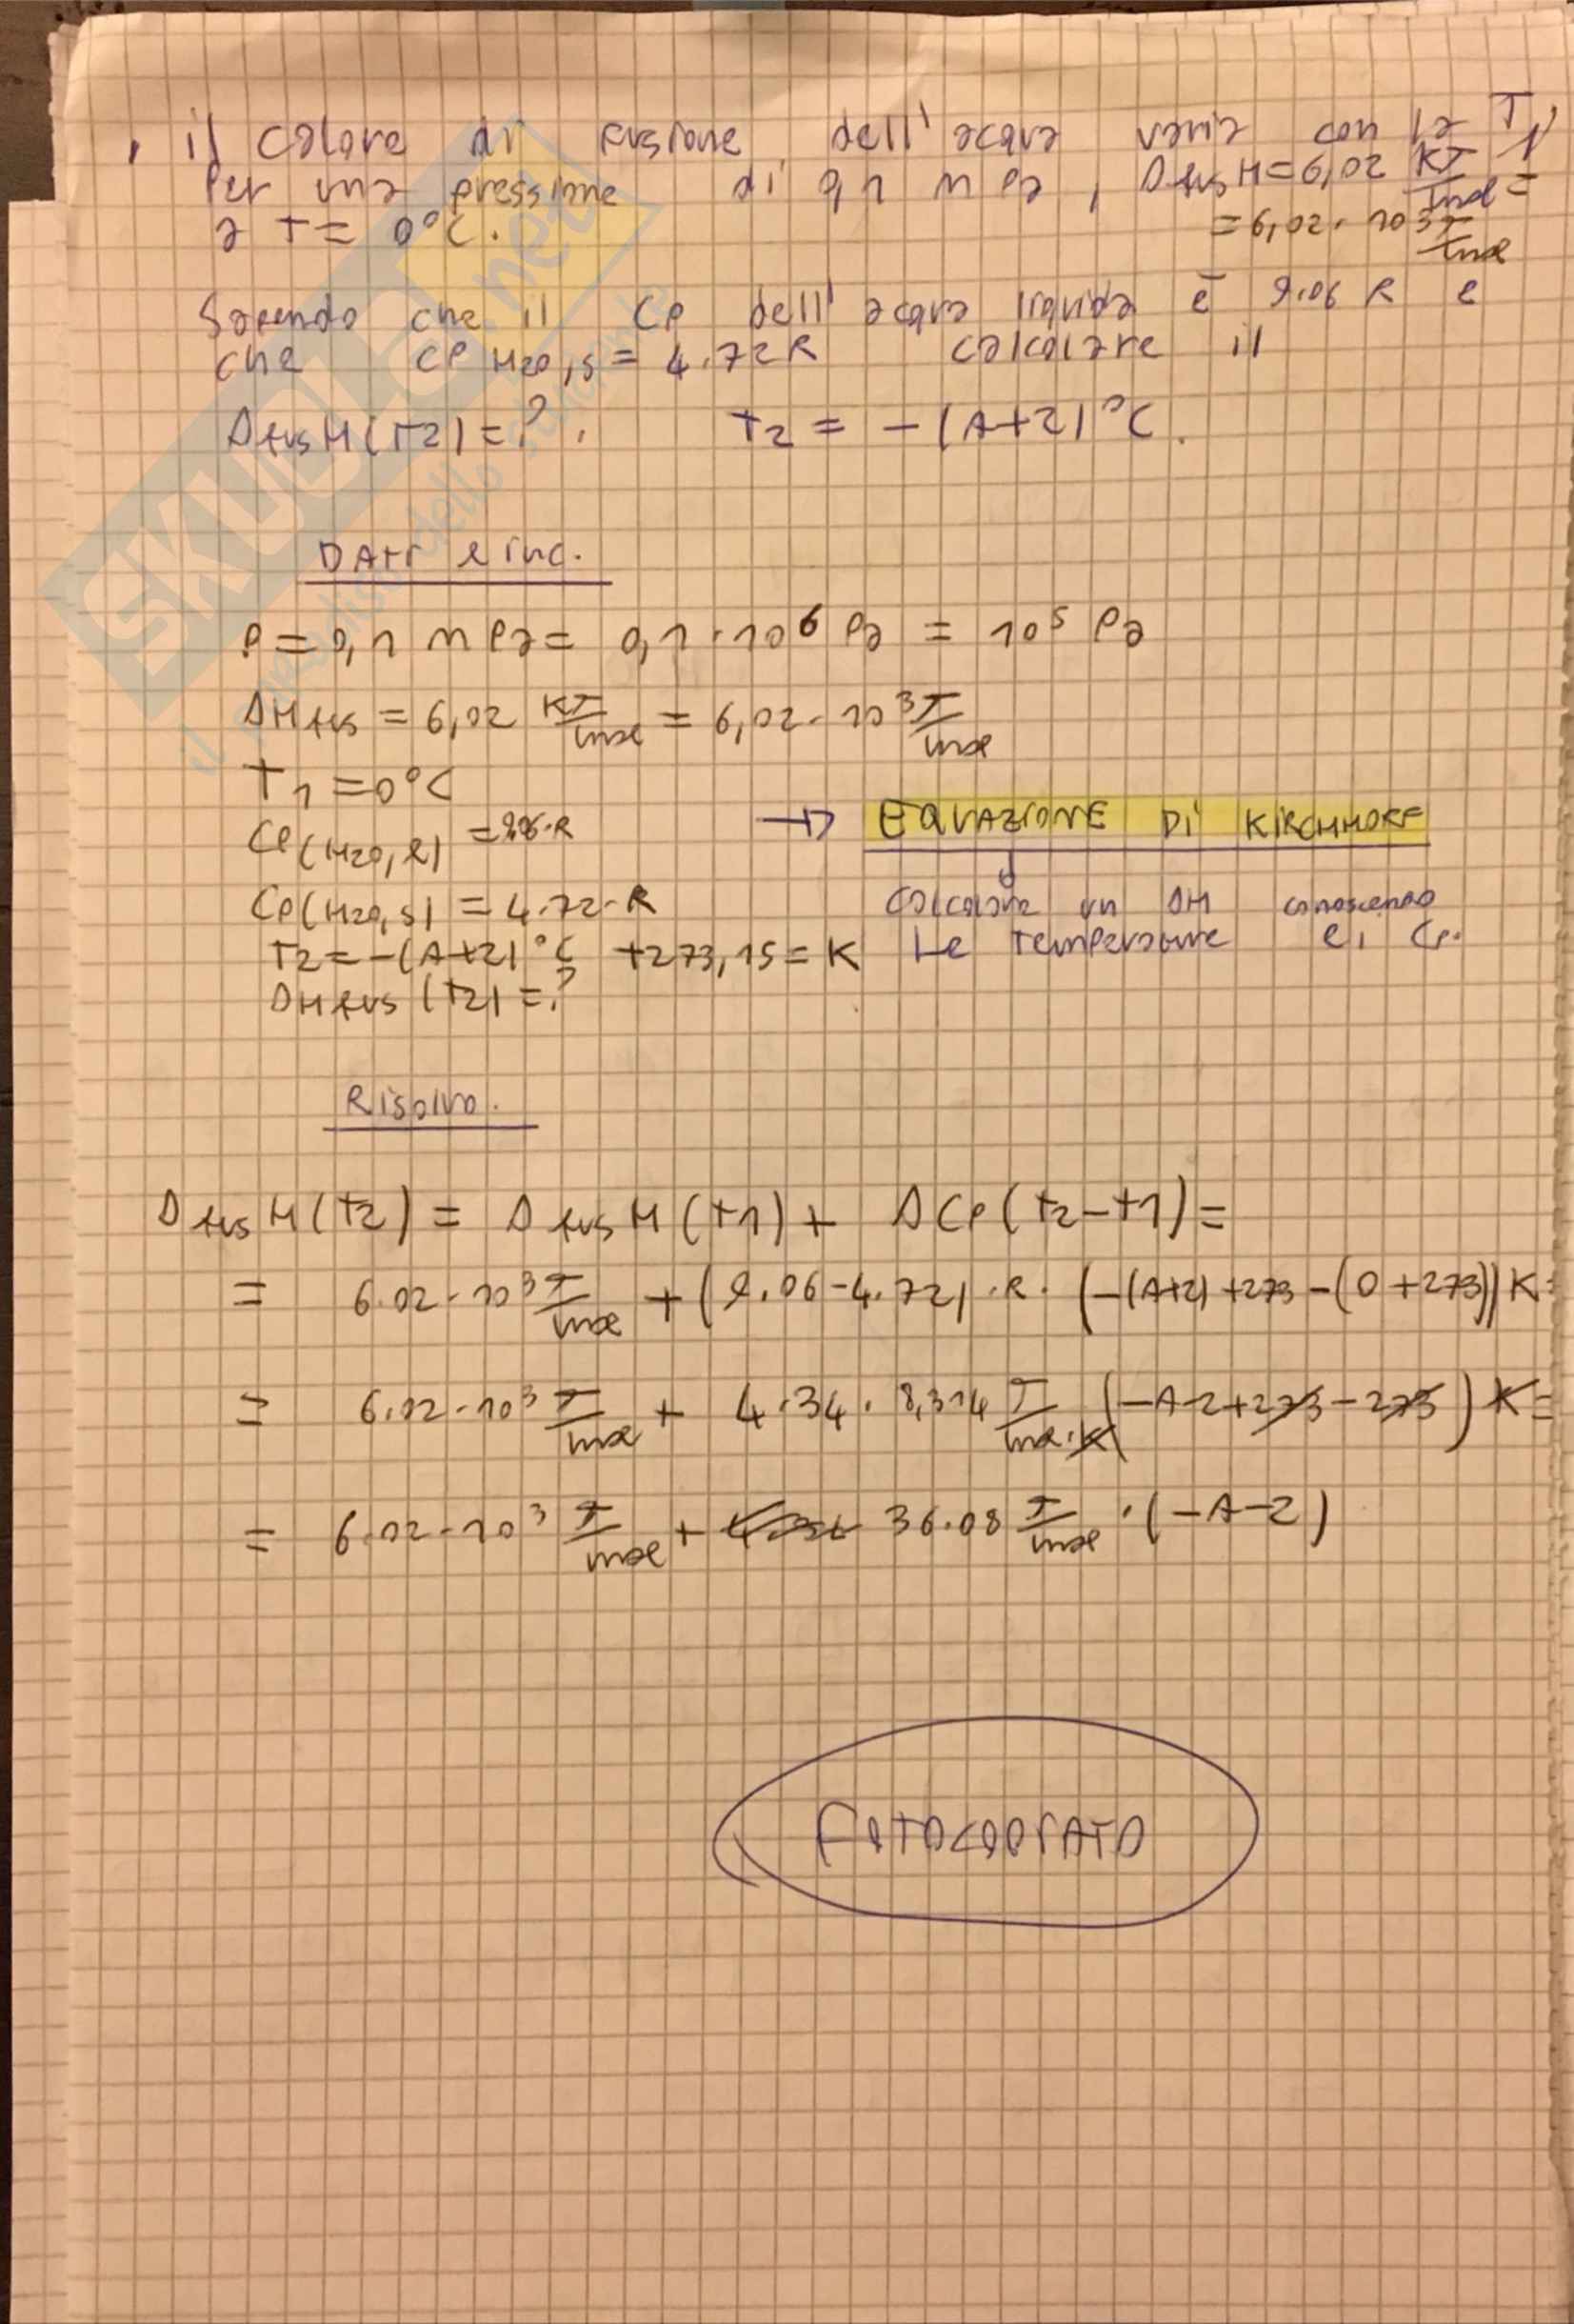 , il calore di fusione dell'acqua varia con la T,
Per una pressione di 0,1 MPa, ΔfusH=6,02 KJ/mol =
a T= 0°C. =6,02·10³ J/mol
Sapendo che il Cp dell'acqua liquida è 9.06 R e
che Cp H2O,s = 4.72R calcolare il
ΔfusH(T2)=?, T2 = -(A+2)°C.
DATI e inc.
P=0,1 MPa= 0,1·10⁶ Pa = 10⁵ Pa
ΔHfus = 6,02 KJ/mol = 6,02·10³ J/mol
T1=0°C
Cp(H2O,l) = ·R → EQUAZIONE DI KIRCHHOFF
Cp(H2O,s) = 4.72·R calcolare un ΔH conoscendo
T2=-(A+2)°C +273,15=K le temperature e i Cp.
ΔHfus (T2)=?
Risolvo.
ΔfusH(T2) = ΔfusH(T1) + ΔCp(T2-T1)=
= 6.02·10³ J/mol + (9.06-4.72)·R·(-(A+2)+273-(0+273))K=
= 6.02·10³ J/mol + 4.34·8,314 J/mol·K (-A-2+273-273)K=
= 6.02·10³ J/mol + 36.08 J/mol·(-A-2)
FOTOCOPIATO
SKUOLA.net
il paradiso dello studente